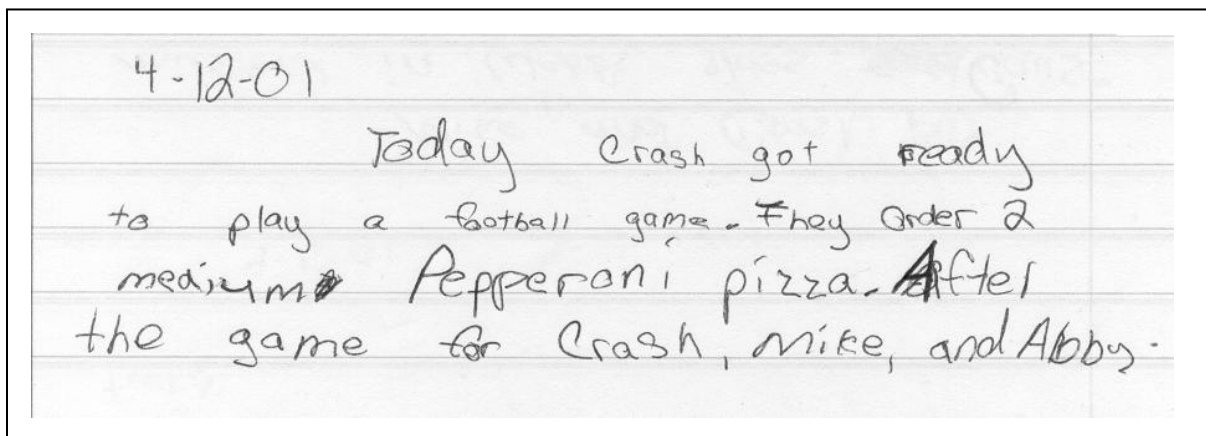 4-12-01
Today Crash got ready
to play a football game. They Order 2
medium Pepperoni pizza. After
the game for Crash, Mike, and Abby.